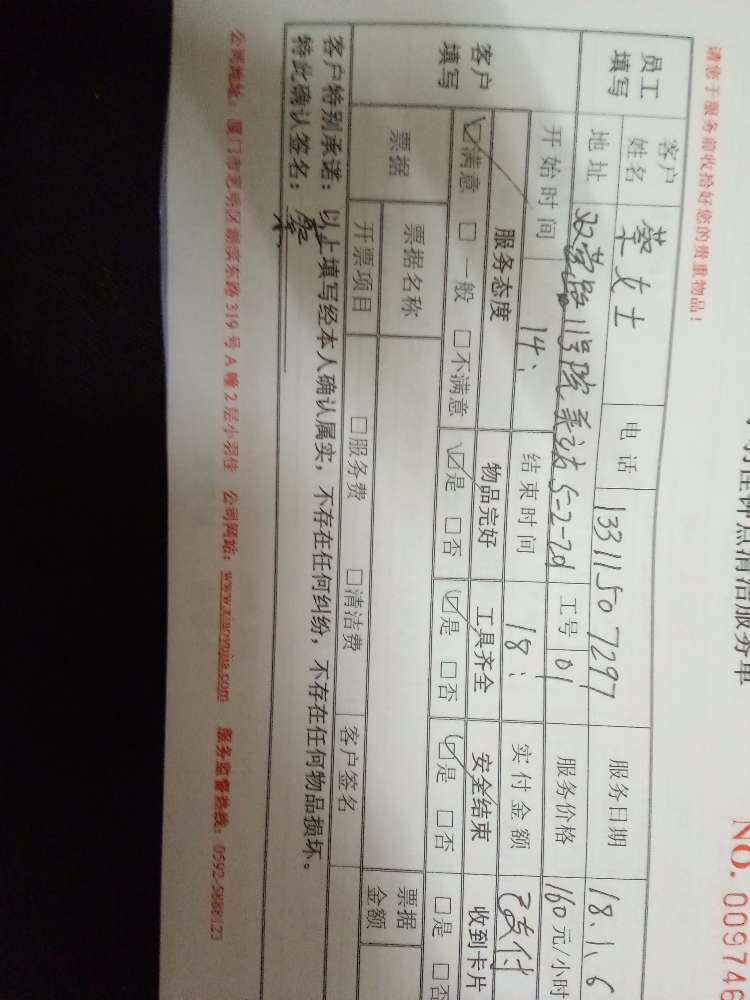 钟点清洁服务单
NO. 009746
请您于服务前收拾好您的贵重物品！
员工填写 客户姓名 女士 电话 13311507297 服务日期 18.1.6
地址 双营路11号院 5-2-701 工号 01 服务价格 160元/小时
客户填写 开始时间 14： 结束时间 18： 实付金额 已支付
服务态度 物品完好 工具齐全 安全结束 收到卡片
☑满意 □一般 □不满意 ☑是 □否 ☑是 □否 ☑是 □否 □是 □否
票据 票据名称 票据金额
开票项目 □服务费 □清洁费 客户签名
客户特别承诺：以上填写经本人确认属实，不存在任何纠纷，不存在任何物品损坏。
特此确认签名：
公司地址：厦门市思明区湖滨东路319号A幢2层小羽佳 公司网站：www.xiaoyujia.com 服务监督热线：0592-5888123